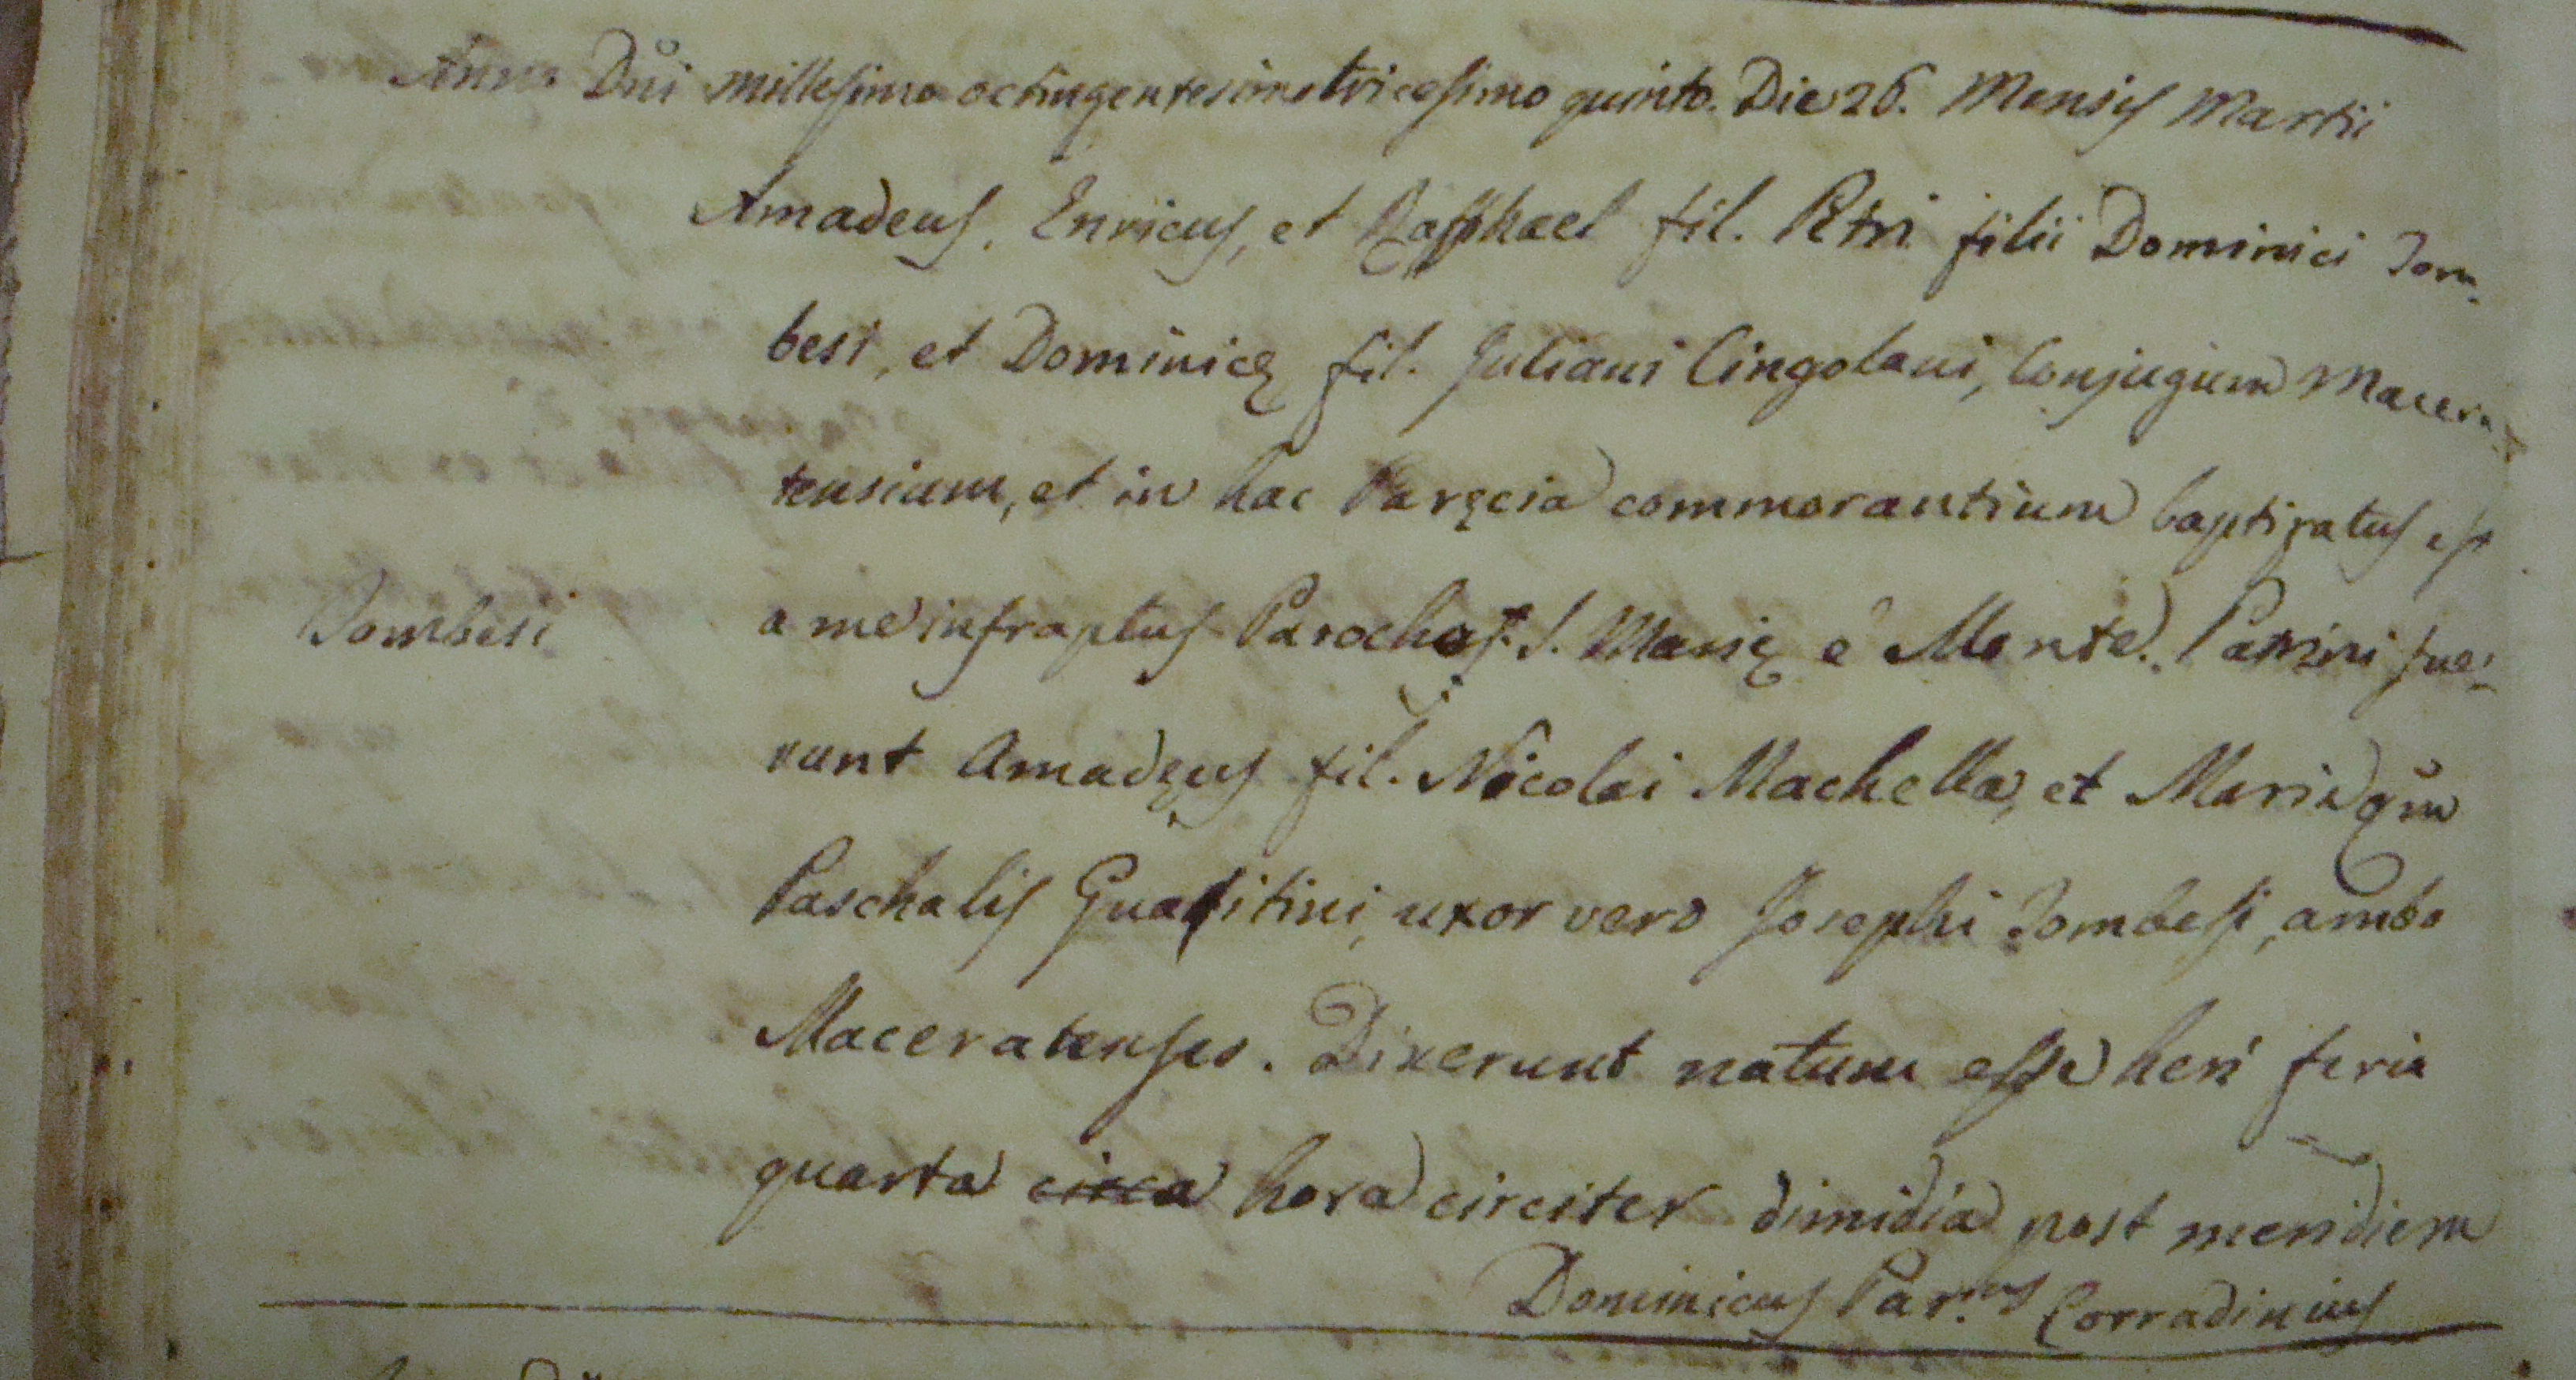 Anno Dñi millesimo octingentesimo tricesimo quinto. Die 26. Mensis Martii
Amadeus, Enricus, et Raffhael fil. Petri filii Dominici Tom-
besi, et Dominicę fil. Juliani Cingolani, Conjugum Macera-
tensium, et in hac Paręcia commorantium baptizatus est
Tombesi
a me infraptus Parochus S. Marię e Monte. Patrini fue-
runt Amadęus fil. Nicolai Machella, et Maria qm̃
Paschalis Gualitini, uxor vero Josephi Tombesi, ambo
Maceratenses. Dixerunt natum esse heri feria
quarta circa hora circiter dimidia post meridiem
Dominicus Par.us Corradinius